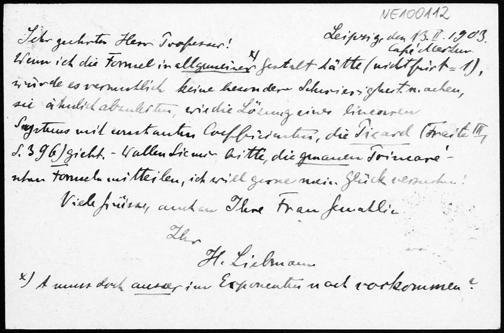 NE100112
Leipzig, den 13. II. 1903.
Café Merkur
Sehr geehrter Herr Professor!
Wenn ich die Formel in allgemeiner x) Gestalt hätte (nicht für t = 1),
würde es vermutlich keine besondere Schwierigkeit machen,
sie ähnlich abzuleiten, wie die Lösung eines linearen
Systems mit constanten Coefficienten, die Picard (Traité III,
S. 396) giebt. - Wollen Sie mir bitte, die genauen Poincaré-
schen Formeln mitteilen, ich will gerne mein Glück versuchen!
Viele Grüsse, auch an Ihre Frau Gemahlin
Ihr
H. Liebmann
x) t muss doch ausser im Exponenten noch vorkommen?